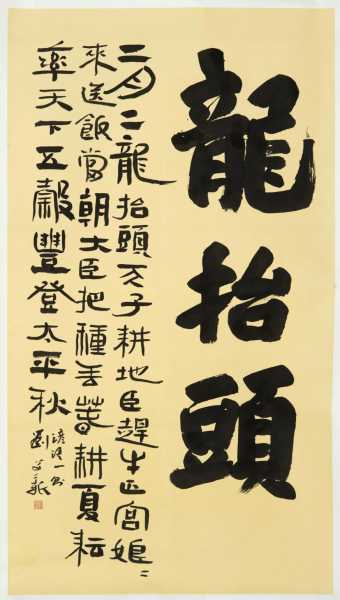 龍抬頭
二月二龍抬頭天子耕地臣趕牛正宮娘〻
來送飯當朝大臣把種丟春耕夏耘
率天下五穀豐登太平秋
劉